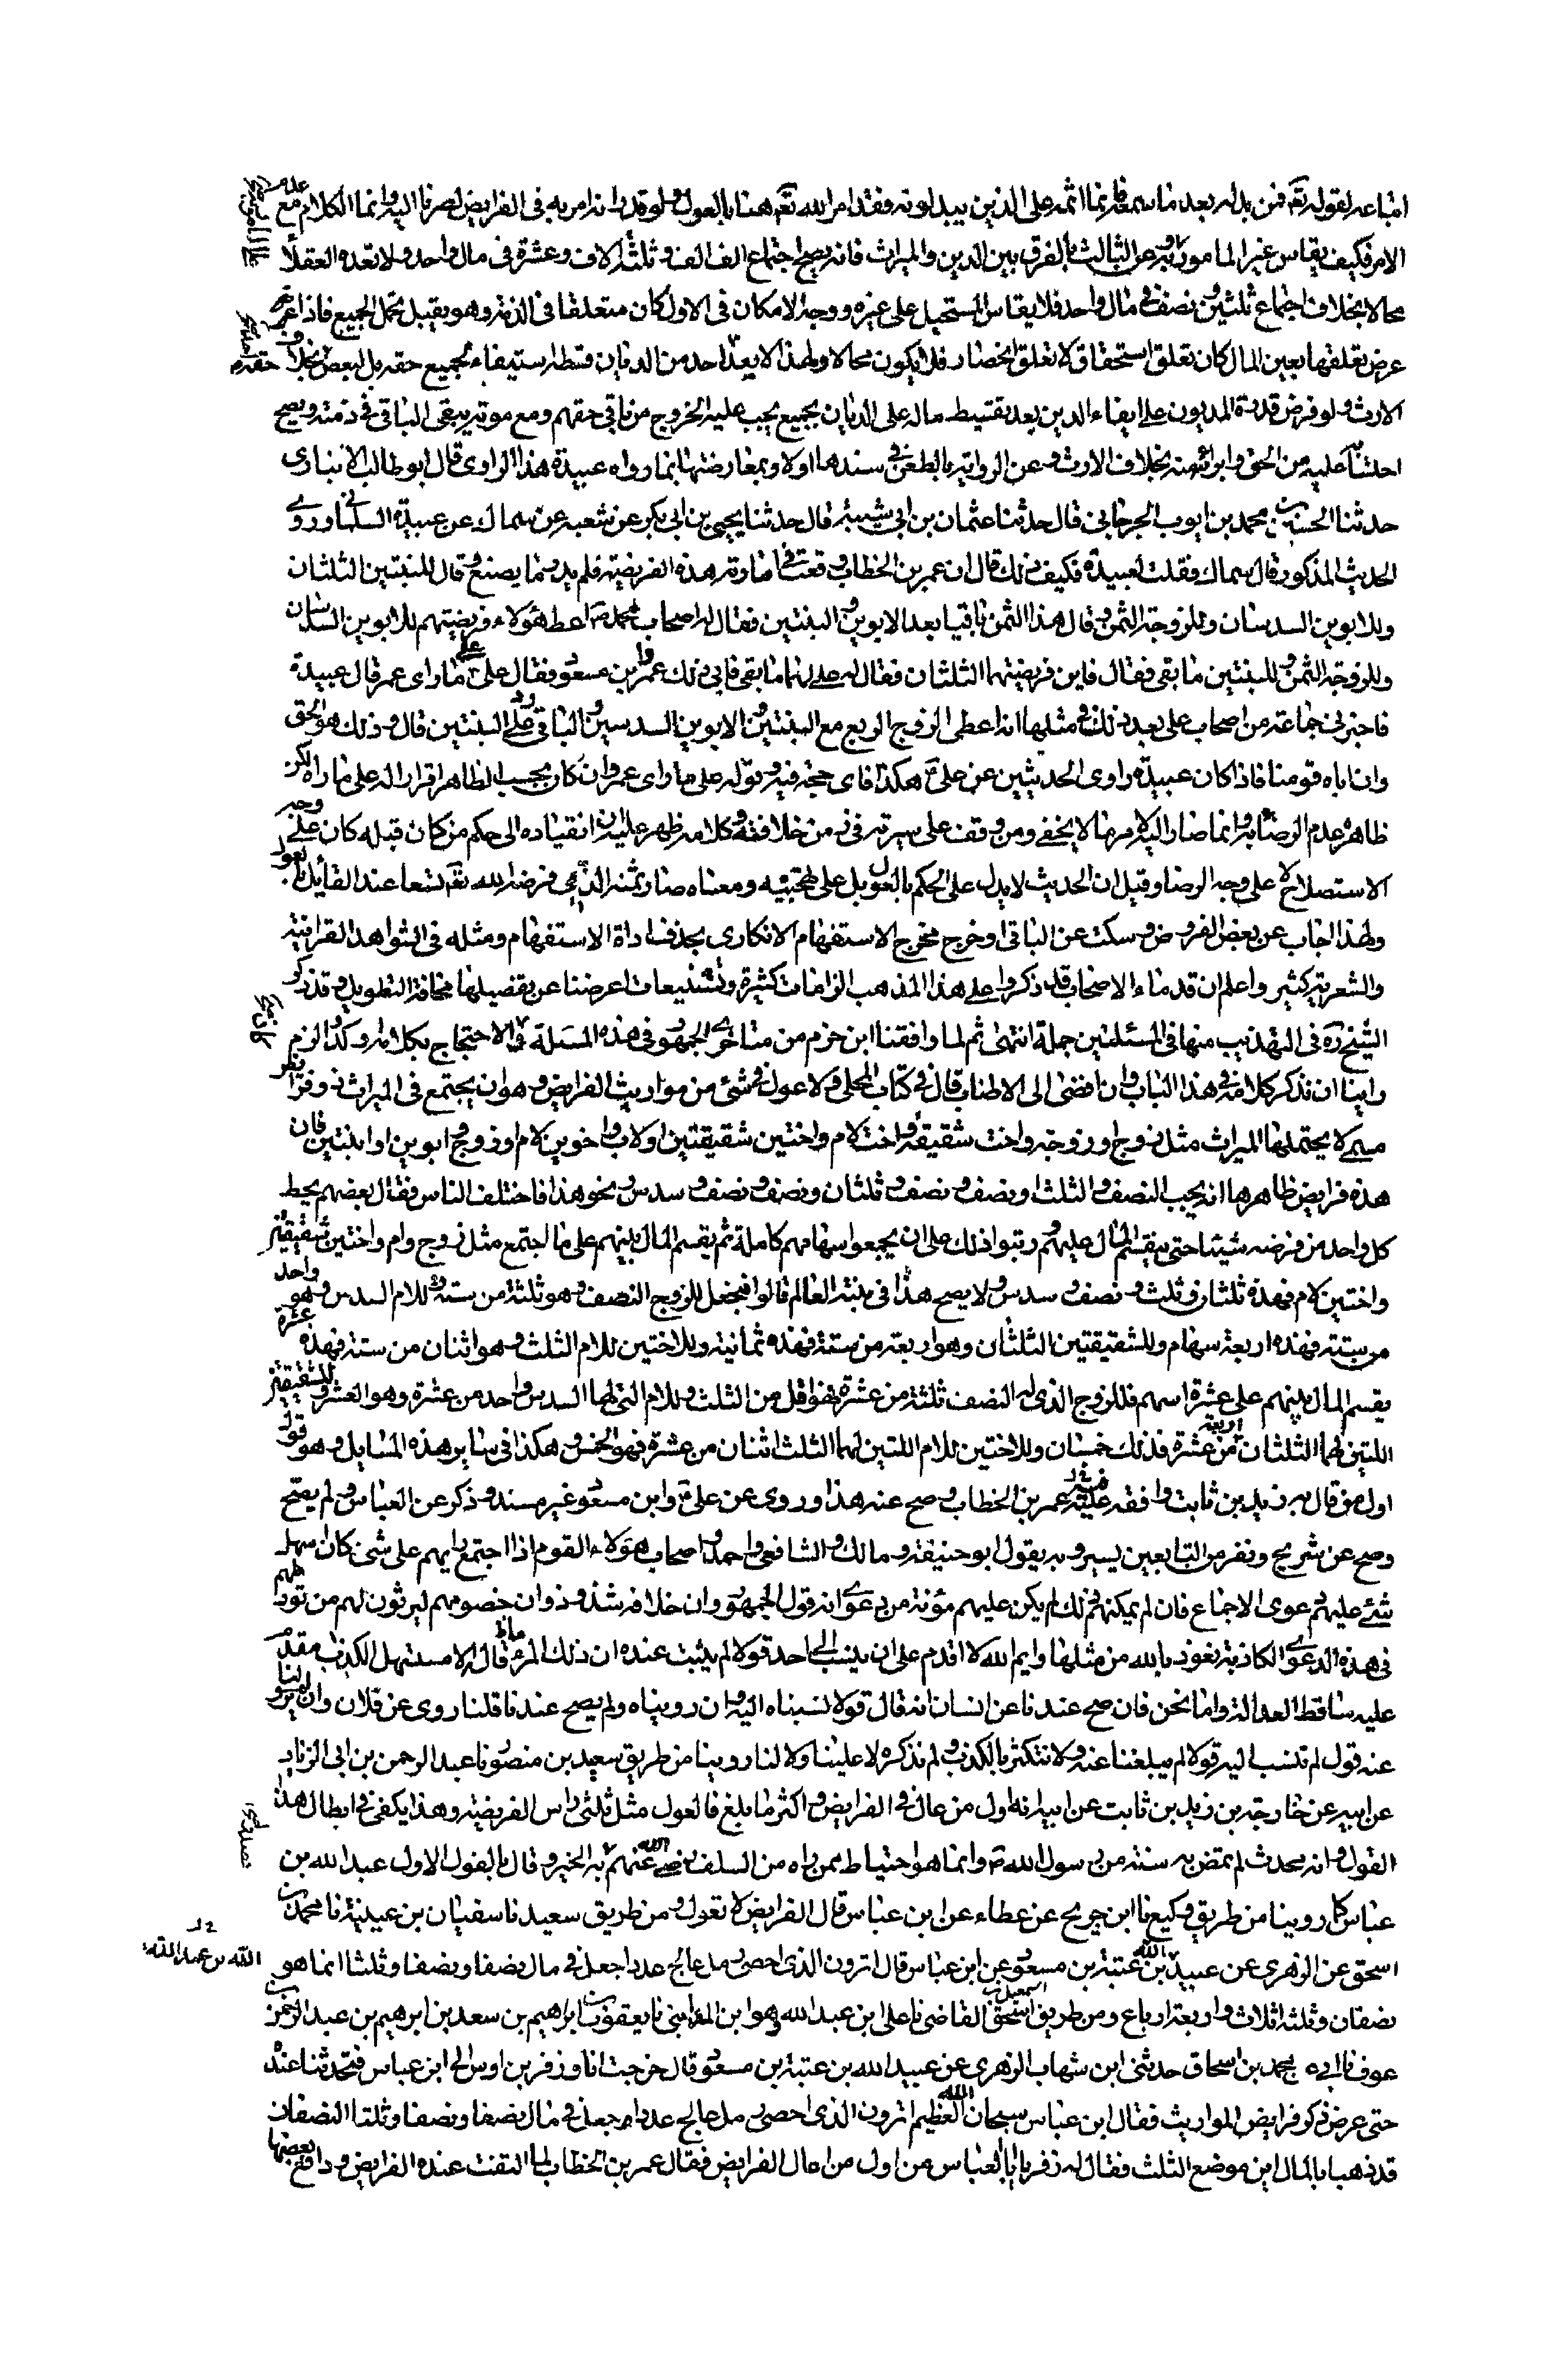 اتباعه لقوله تعم فمن بدله بعد ما سمعه فانما اثمه على الذين يبدلونه وفقد امر الله تعم هنا بالعول ولو قدر انه امر به في الفرايض لصرنا اليه وانما الكلام مع
الامر فكيف يقاس غير المامور به وعن الثالث بالفرق بين الدين والميراث فانه يصح اجتماع الف الف وثلثة الاف وعشرة في مال واحد ولا تعده العقلاء
محالا بخلاف اجتماع ثلثين ونصف في مال واحد فلا يقاس المستحيل على غيره ووجه الامكان في الاول كان متعلقا في الذمة وهو يقبل تحمل الجميع فاذا
عرض تعلقها بعين المال كان تعلق استحقاق لا تعلق انحصار فلا يكون محالا ولهذا لا يعد احد من الديان قسطه استيفاء لجميع حقه بل لبعض بخلاف
الارث ولو فرض قدرة المديون على ايفاء الدين بعد تقسيط ماله على الديان يجب عليه الخروج من باقي حقهم ومع موته يبقى الباقي في ذمته ويصح
احتسابه عليه من الحق وابرائه منه بخلاف الارث وعن الرواية بالطعن في سندها اولا وبمعارضتها بما رواه عبيدة هذا الراوي قال ابو طالب الانباري
حدثنا الحسن بن محمد بن ايوب الجرجاني قال حدثنا عثمان بن ابي شيبة قال حدثنا يحيى بن ابي بكر عن شعبه عن سماك عن عبيدة السلماني وروى
الحديث المذكور قال سماك فقلت لعبيدة فكيف ذلك قال ان عمر بن الخطاب وقعت في امارته هذه الفريضة فلم يدر ما يصنع وقال للبنتين الثلثان
وللابوين السدسان وللزوجة الثمن وقال هذا الثمن باقيا بعد الابوين والبنتين فقال له اصحاب محمد ص اعط هؤلاء فريضتهم للابوين السدسان
وللزوجة الثمن وللبنتين ما بقي فقال فاين فريضتهما الثلثان فقال له علي لهما ما بقي فابى ذلك عمر وابن مسعود فقال علي ع على ما راى عمر قال عبيدة
فاخبرني جماعة من اصحاب علي بعد ذلك في مثلها انه اعطى الزوج الربع مع البنتين والابوين السدسين والباقي رد على البنتين قال وذلك هو الحق
وان اباه قومنا فاذا كان عبيدة راوي الحديثين عن علي ع هكذا فاى حجة فيه وقوله على ما راى عمر وان كان بحسب الظاهر اقرارا له على ما راه لكن
ظاهره عدم الرضا به وانما صار اليه لامر ما لا يخفى ومن وقف على سيرته في زمن خلافته وكلامه ظهر عليه ان انقياده الى حكم من كان قبله كان على وجه
الاستصلاح لا على وجه الرضا وقيل ان الحديث لا يدل على الحكم بالعول بل على تهجينه ومعناه صار ثمنها الذي فرضه الله تعم تسعا عند القايل بالعول
ولهذا اجاب عن بعض الفروض وسكت عن الباقي او خرج مخرج الاستفهام الانكاري بحذف اداة الاستفهام ومثله في الشواهد القرانية
والشعرية كثير واعلم ان قدماء الاصحاب قد ذكروا على هذا المذهب الزامات كثيرة وتشنيعات اعرضنا عن تفصيلها مخافة التطويل وقد ذكر
الشيخ ره في التهذيب منها في المسئلتين جملة انتهى ثم لما وافقنا ابن حزم من متاخري الجمهور في هذه المسئلة
راينا ان نذكر كلامه في هذا الباب وان افضى الى الاطناب قال في كتاب المحلى ولا عول في شئ من مواريث الفرايض وهو ان يجتمع في الميراث ذو فرايض
مسماة لا يحتملها الميراث مثل زوج او زوجة واخت شقيقة واخت لام واختين شقيقتين او لاب واخوين لام او زوج وابوين او ابنتين فان
هذه فرايض ظاهرها انه يجب النصف والثلث او نصف ونصف وثلثان ونصف ونصف وسدس ونحو هذا فاختلف الناس فقال بعضهم يحط
كل واحد من فرضه شيئا حتى يقسم المال عليهم ورتبوا ذلك على ان يجمعوا سهامهم كاملة ثم يقسم المال بينهم على ما اجتمع مثل زوج وام واختين شقيقتين
واختين لام فهذه ثلثان وثلث ونصف وسدس ولا يصح هذا في بنية العالم قالوا فنجعل للزوج النصف وهو ثلثة من ستة وللام السدس وهو واحد
من ستة فهذه اربعة سهام وللشقيقتين الثلثان وهو اربعة من ستة فهذه ثمانية وللاختين للام الثلث وهو اثنان من ستة فهذه عشرة
يقسم المال بينهم على عشرة اسهم فللزوج الذي له النصف ثلثة من عشرة فهو اقل من الثلث وللام التي لها السدس واحد من عشرة وهو العشر وللشقيقتين
اللتين لهما الثلثان اربعة من عشرة فذلك خمسان وللاختين للام اللتين لهما الثلث اثنان من عشرة فهو الخمس وهكذا في ساير هذه المسايل وهو قول
اول من قال به زيد بن ثابت وافقه عليه عمر بن الخطاب وصح عنه هذا وروى عن علي ع وابن مسعود غير مسند وذكر عن العباس ولم يصح
وصح عن شريح ونفر من التابعين يسير وبه يقول ابو حنيفة ومالك والشافعي واحمد واصحاب هؤلاء القوم اذا اجتمع رايهم على شئ كان اسهل
شئ عليهم دعوى الاجماع فان لم يمكنهم ذلك لم يكن عليهم مؤنة من دعوى انه قول الجمهور وان خلافه شذوذ وان خصومهم ليرثون لهم من تورطهم
في هذه الدعوى الكاذبة نعوذ بالله من مثلها وايم الله لا اقدم على ان ينسب الى احد قولا لم يثبت عنده ان ذلك المرء قاله الا مستسهل الكذب مقدم
عليه ساقط العدالة واما نحن فان صح عندنا عن انسان انه قال قولا نسبناه اليه وان رويناه ولم يصح عندنا قلنا روى عن فلان وان لم يرو لنا
عنه قول لم ننسب اليه قولا لم يبلغنا عنه ولا نتكثر بالكذب ولم نذكره لا علينا ولا لنا روينا من طريق سعيد بن منصور نا عبد الرحمن بن ابي الزناد
عن ابيه عن خارجة بن زيد بن ثابت عن ابيه انه اول من عال في الفرايض واكثر ما بلغ فالعول مثل ثلثي راس الفريضة وهذا يكفي في ابطال هذا
القول وانه محدث لم يمض به سنة من رسول الله ص وانما هو احتياط ممن راه من السلف رضي الله عنهم به الخير وقال بالقول الاول عبد الله بن
عباس كما روينا من طريق وكيع نا ابن جريج عن عطاء عن ابن عباس قال الفرايض لا تعول ومن طريق سعيد نا سفيان بن عيينة نا محمد بن
اسحق عن الزهري عن عبيد الله بن عتبة بن مسعود عن ابن عباس قال اترون الذي احصى رمل عالج عددا جعل في مال نصفا ونصفا وثلثا انما هو
الله بن عبد الله
نصفان وثلثة اثلاث واربعة ارباع ومن طريق اسمعيل بن اسحق القاضي نا علي ابن عبد الله وهو ابن المديني نا يعقوب بن ابراهيم بن سعد بن ابرهيم بن عبد الرحمن بن
عوف نا ابي نا محمد بن اسحاق حدثني ابن شهاب الزهري عن عبيد الله بن عتبة بن مسعود قال خرجت انا وزفر بن اوس الى ابن عباس فتحدثنا عنده
حتى عرض ذكر فرايض المواريث فقال ابن عباس سبحان الله العظيم اترون الذي احصى رمل عالج عددا جعل في مال نصفا ونصفا وثلثا النصفان
قد ذهبا بالمال اين موضع الثلث فقال له زفر يا ابا العباس من اول من اعال الفرايض فقال عمر بن الخطاب لما التقت عنده الفرايض ودافع بعضها